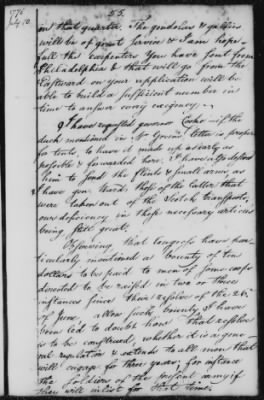 55.
1776
July 10
in that quarter. The gondolas & gallies
will be of great Service & I am hope-
full the carpenters You have sent from
Philadelphia & that will go from the
Eastward on your application will be
able to build a sufficient number in
time to answer every exigency. —
I have requested governor Cooke if the
duck mentioned in Mr Greene's letter is proper
for tents, to have it made up as early as
possible & forwarded here. I have also desired
him to send the flints & small arms as
I have you those of the latter that
were taken out of the Scotch transports,
our deficiency in these necessary articles
being still great. —
Observing that Congress have par-
ticularly mentioned a bounty of ten
dollars to be paid to men of some corps
directed to be raised in two or three
instances since their resolve of the 26
of June, allow such bounty, I have
been led to doubt how that resolve
is to be construed, whether it is a gene-
ral regulation & extends to all men that
will engage for three years; for instance
the Soldiers of the present army if
they will inlist for that time.